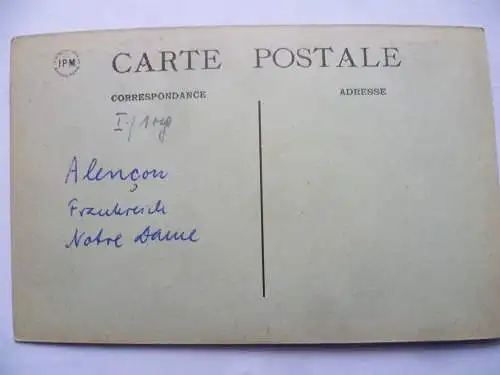 IPM
CARTE POSTALE
CORRESPONDANCE
ADRESSE
Alençon
Frankreich
Notre Dame